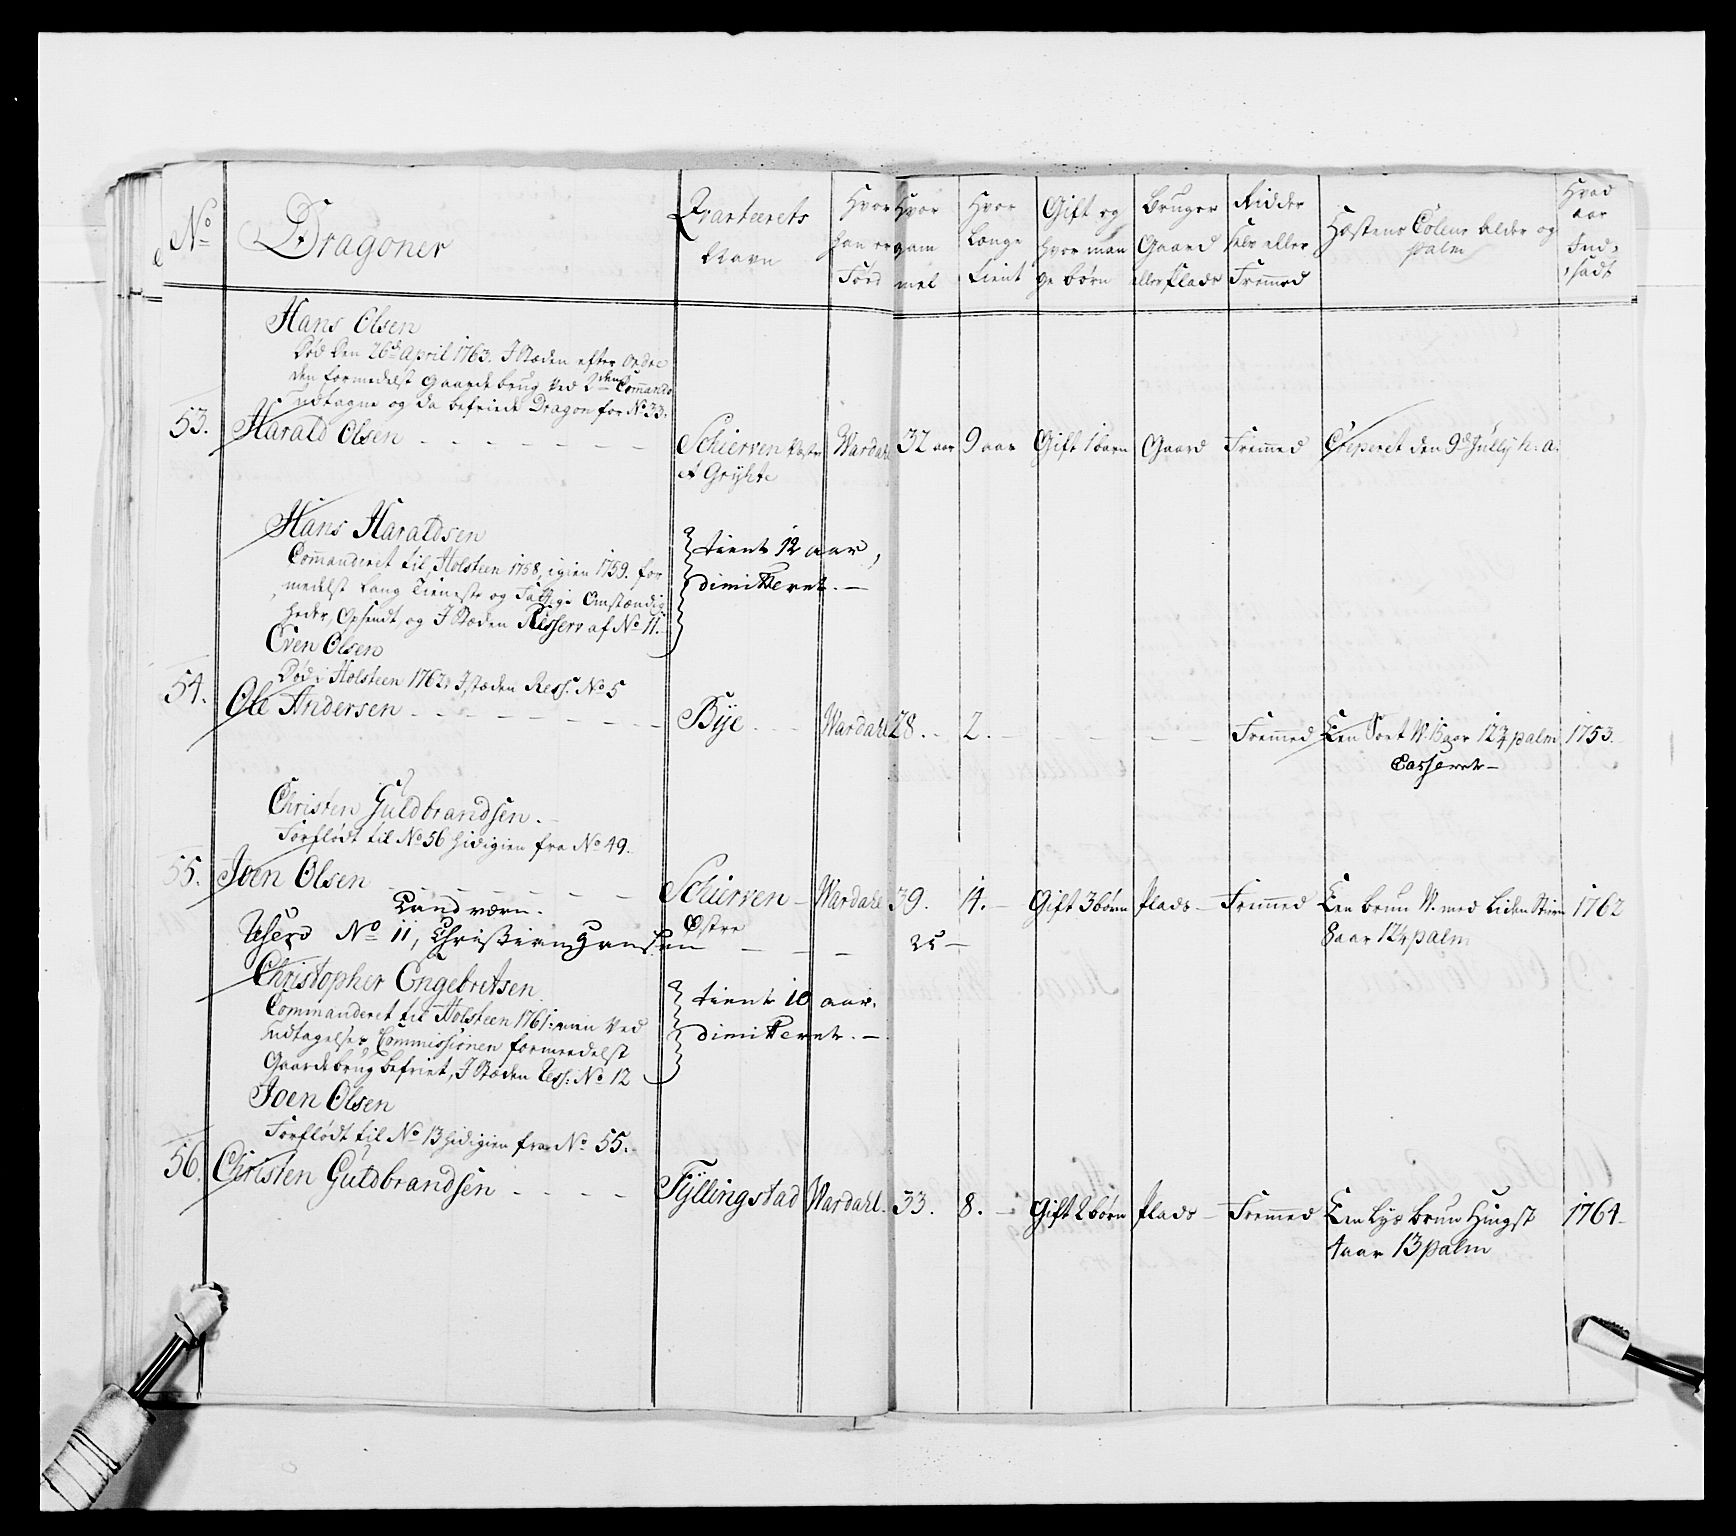 No
Dragoner
Qvarteerets Navn
Hvor han er Fød
Hvor gam mel
Hvor Længe tient
Gift og hvor man ge børn
Bruger Gaard eller Plads
Ridder selv eller Fremmed
Hæstens Coleur alder og palm
Hvad aar Ind, sadt
Hans Olsen
Død den 26de April 1763. I Stæden efter Ordre
den formedelst Gaarde brug ved 2den Commando
udtagne og da befriede Dragon for No 33.
53. Harald Olsen - - - Schierven Wardahl 32 aar 9 aar Gift 1 barn Gaard Fremmed Creperet den 9de Jullÿ h: a:
Hans Haraldsen
Commanderet til Holsteen 1758, igien 1759. for
medelst Lang Tieneste og Fattige Omstændig
heder, Opsendt, og I Stæden Resserv af No 11.
tient 12 aar,
dimitteret. -
Even Olsen
Død i Holsteen 1762, I stæden Ress: No 5
54. Ole Andersen - - - Bÿe - - Wardahl 28. - 2. - - - - Fremmed Een Sort W. 15 aar 12¼ palm 1753.
Casseret -
Christen Guldbrandsen.
Forflødt til No 56 hidigien fra No 49.
55. Joen Olsen - - - Schierven - Wardahl 39. 14. - Gift 3 børn Plads - Fremmed Een brun W. med Liden Stiern 1762
Østre
8 aar 12¼ palm
Land værn.
No 11, Christian Hansen - - - 25 -
Christopher Engebretsen
Commanderet til Holsteen 1761. men ved
Udtagelses Commissionen formedelst
Gaardebrug befriet, I Stæden Ress: No 12
tient 10 aar.
dimitteret. -
Joen Olsen
Forflødt til No 13 hidigien fra No 55.
56. Christen Guldbrandsen - - - Fÿllingstad Wardahl. 33. 8. - Gift 2 børn Plads - Fremmed Een Lys brun Hingst 1764
4 aar 13 palm